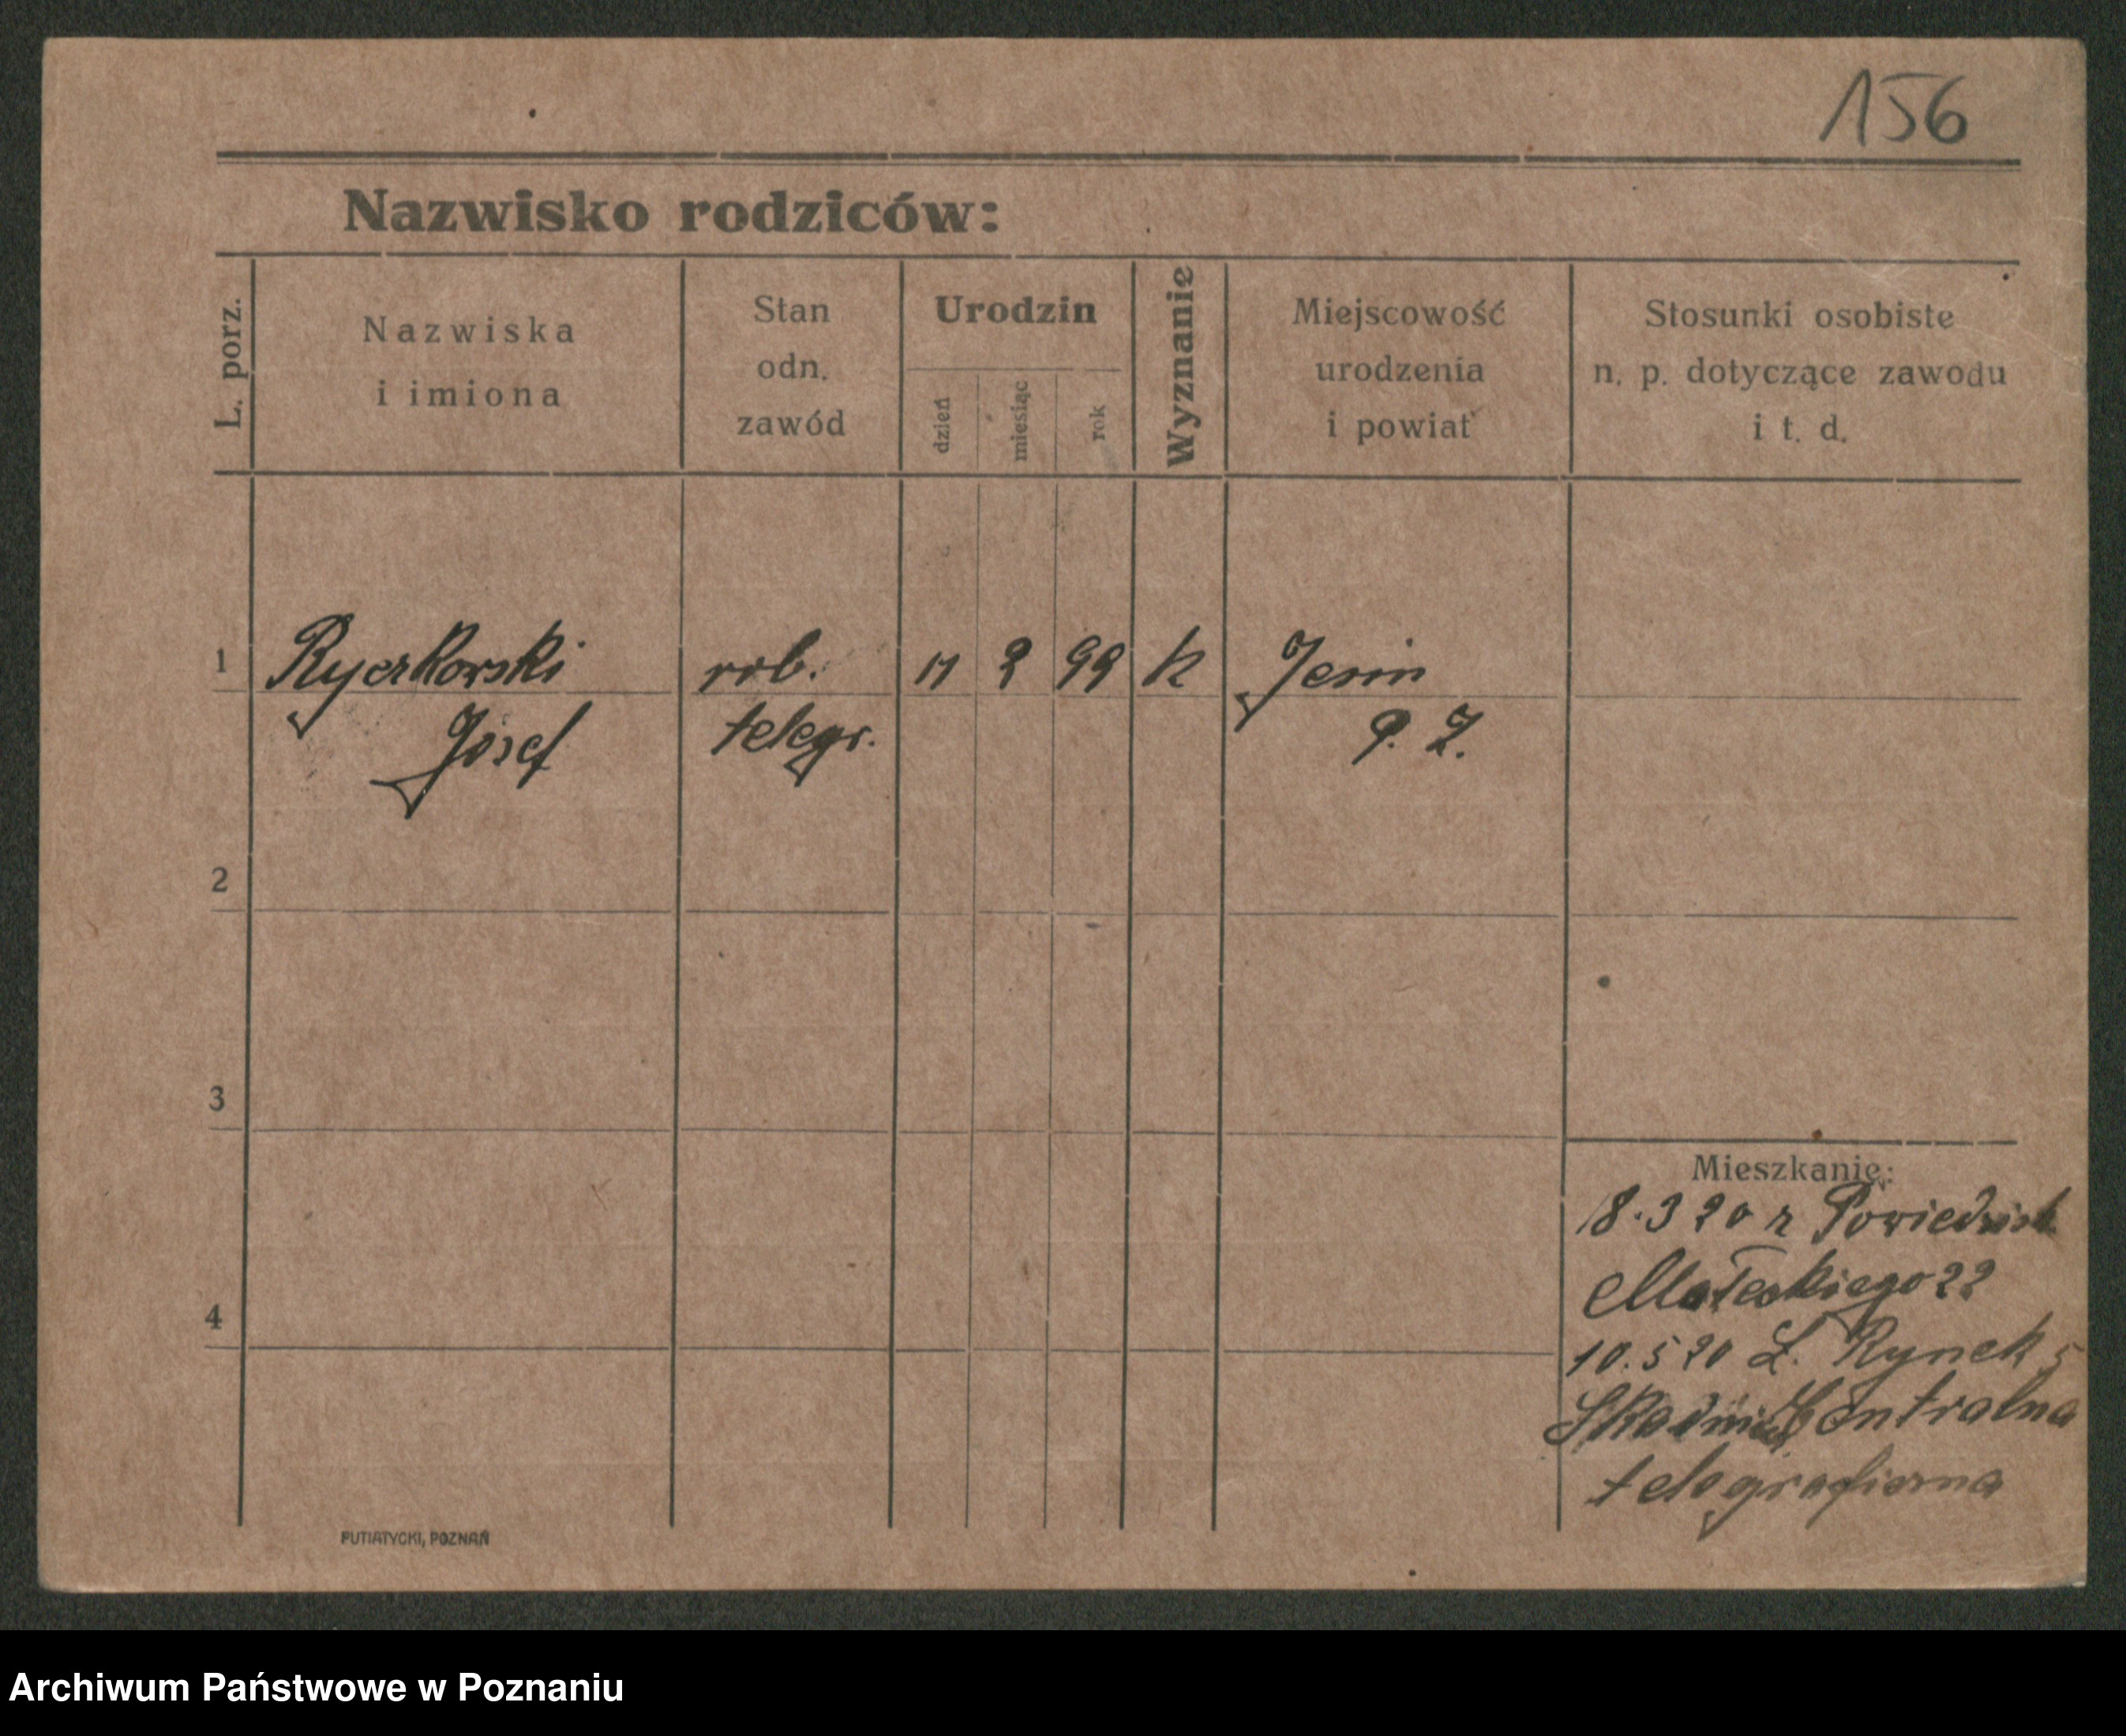 156
Nazwisko rodziców:
L. porz.
Nazwiska
i imiona
Stan
odn.
zawód
Urodzin
dzień
miesiąc
rok
Wyznanie
Miejscowość
urodzenia
i powiat
Stosunki osobiste
n. p. dotyczące zawodu
i t. d.
1 Ryczkowski rob. 11 2 99 k
Józef telegr.
2
3
4
Mieszkanie:
18.3 20 z
Małeckiego 22
10.5 20 Ł. Rynek 5
Centralna
telegraficzna
PUTIATYCKI, POZNAŃ
Archiwum Państwowe w Poznaniu